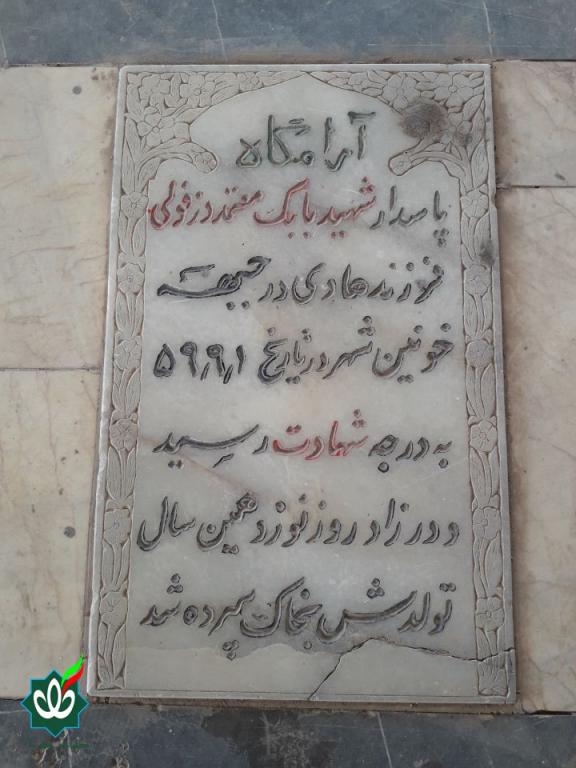 آرامگاه
پاسدار شهید بابک معتمد دزفولی
فرزند هادی در جبهه
خونین شهر در تاریخ ۵۹٫۹٫۱
به درجه شهادت رسید
و در زاد روز نوزدهمین سال
تولدش بخاک سپرده شد